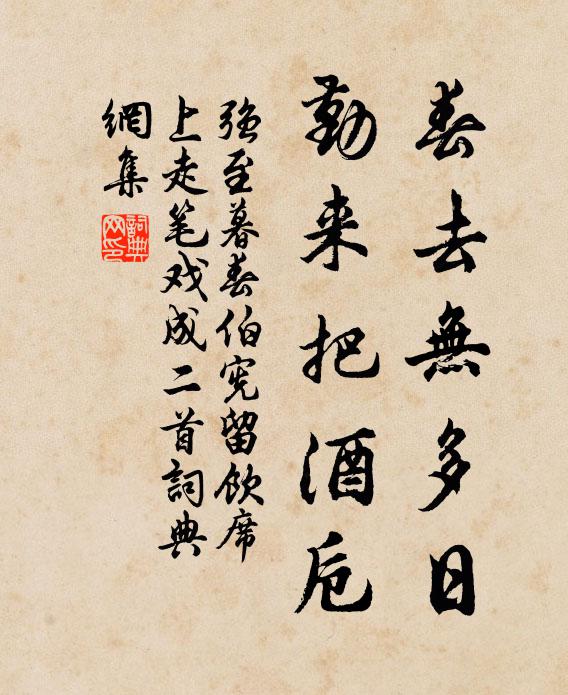 春去無多日
勤来把酒卮
強至暮春伯宪留飲席
上走笔戏成二首詞典
網集
詞典
网印